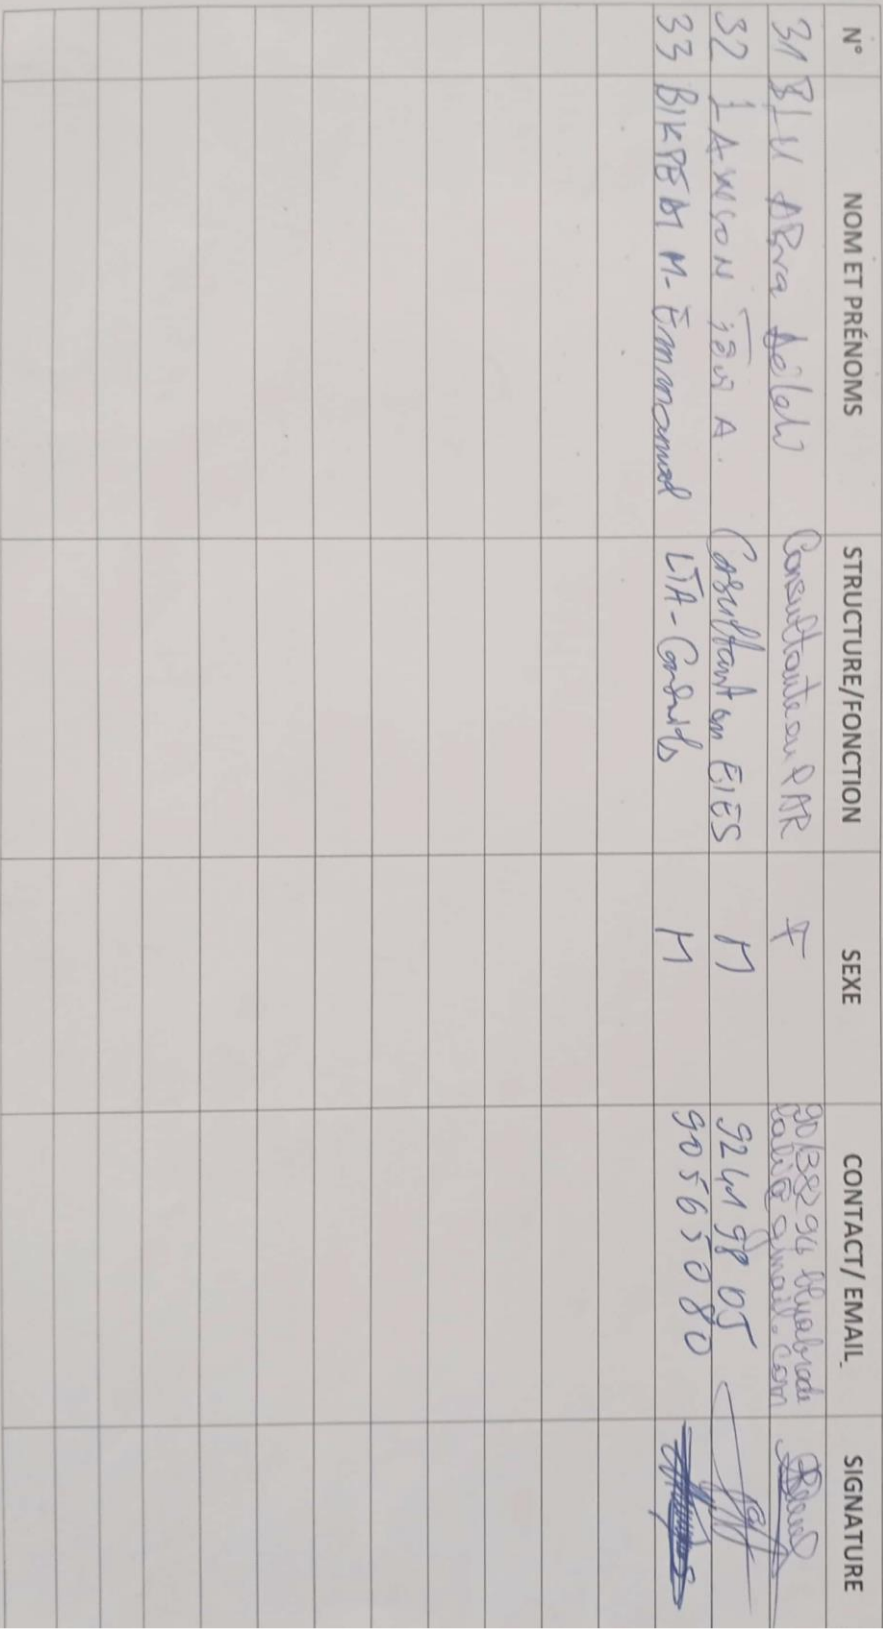 N° NOM ET PRÉNOMS STRUCTURE/FONCTION SEXE CONTACT/ EMAIL SIGNATURE
31 BLU ABra Consultante en PAR F 90138294
@gmail.com
32 LAWSON A. Consultant en EIES M 92419805
33 BIKPETA M-Emmanuel LTA-Conseils M 90565080